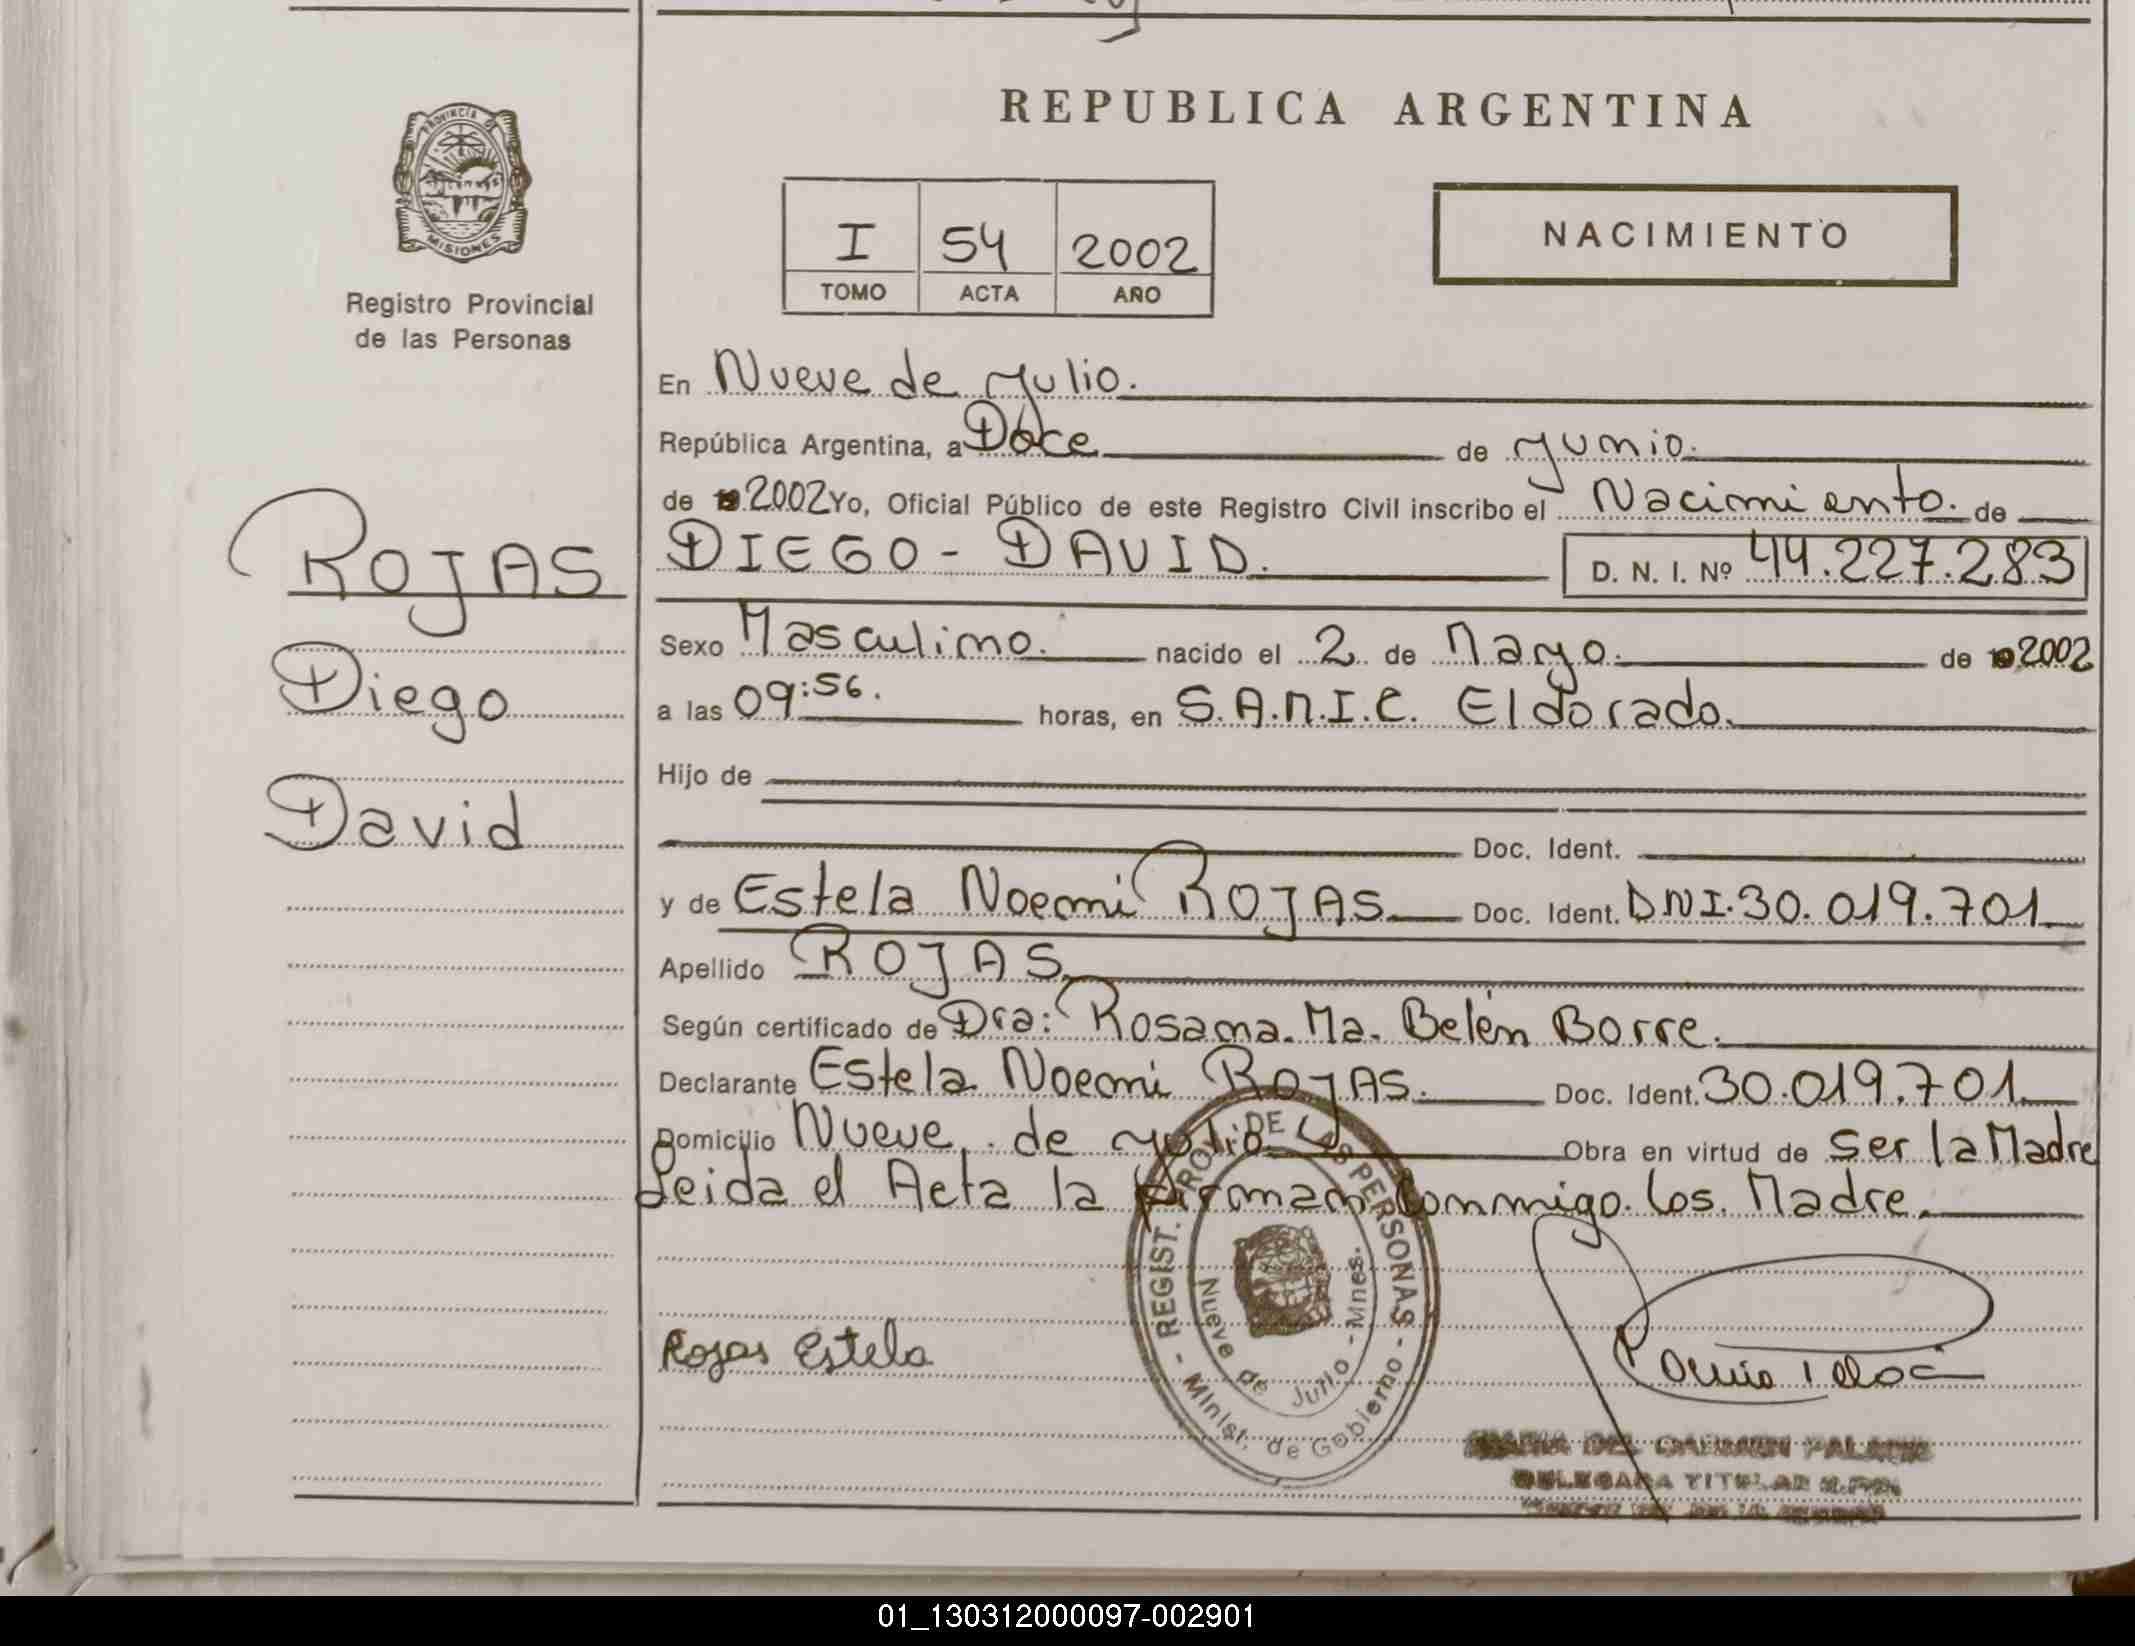 PROVINCIA DE
MISIONES
Registro Provincial
de las Personas
ROJAS
Diego
David
REPUBLICA ARGENTINA
I 54 2002
TOMO ACTA AÑO
NACIMIENTO
En Nueve de Julio.
República Argentina, a Doce de Junio.
de 19 2002 Yo, Oficial Público de este Registro Civil inscribo el Nacimiento. de
DIEGO - DAVID. D. N. I. Nº 44.227.283
Sexo Masculino. nacido el 2 de Mayo. de 19 2002
a las 09:56. horas, en S.A.M.I.C. Eldorado.
Hijo de
Doc. Ident.
y de Estela Noemi ROJAS. Doc. Ident. DNI.30.019.701.
Apellido ROJAS.
Según certificado de Dra: Rosana. Ma. Belén Borre.
Declarante Estela Noemi ROJAS. Doc. Ident. 30.019.701.
Domicilio Nueve de Julio. Obra en virtud de Ser la Madre
Leida el Acta la firman Conmigo. los. Madre.
REGIST. PROV. DE LAS PERSONAS - Minist. de Gobierno -
Nueve de Julio - Mnes.
Rojas Estela
MARIA DEL CARMEN
DELEGADA TITULAR
01_130312000097-002901